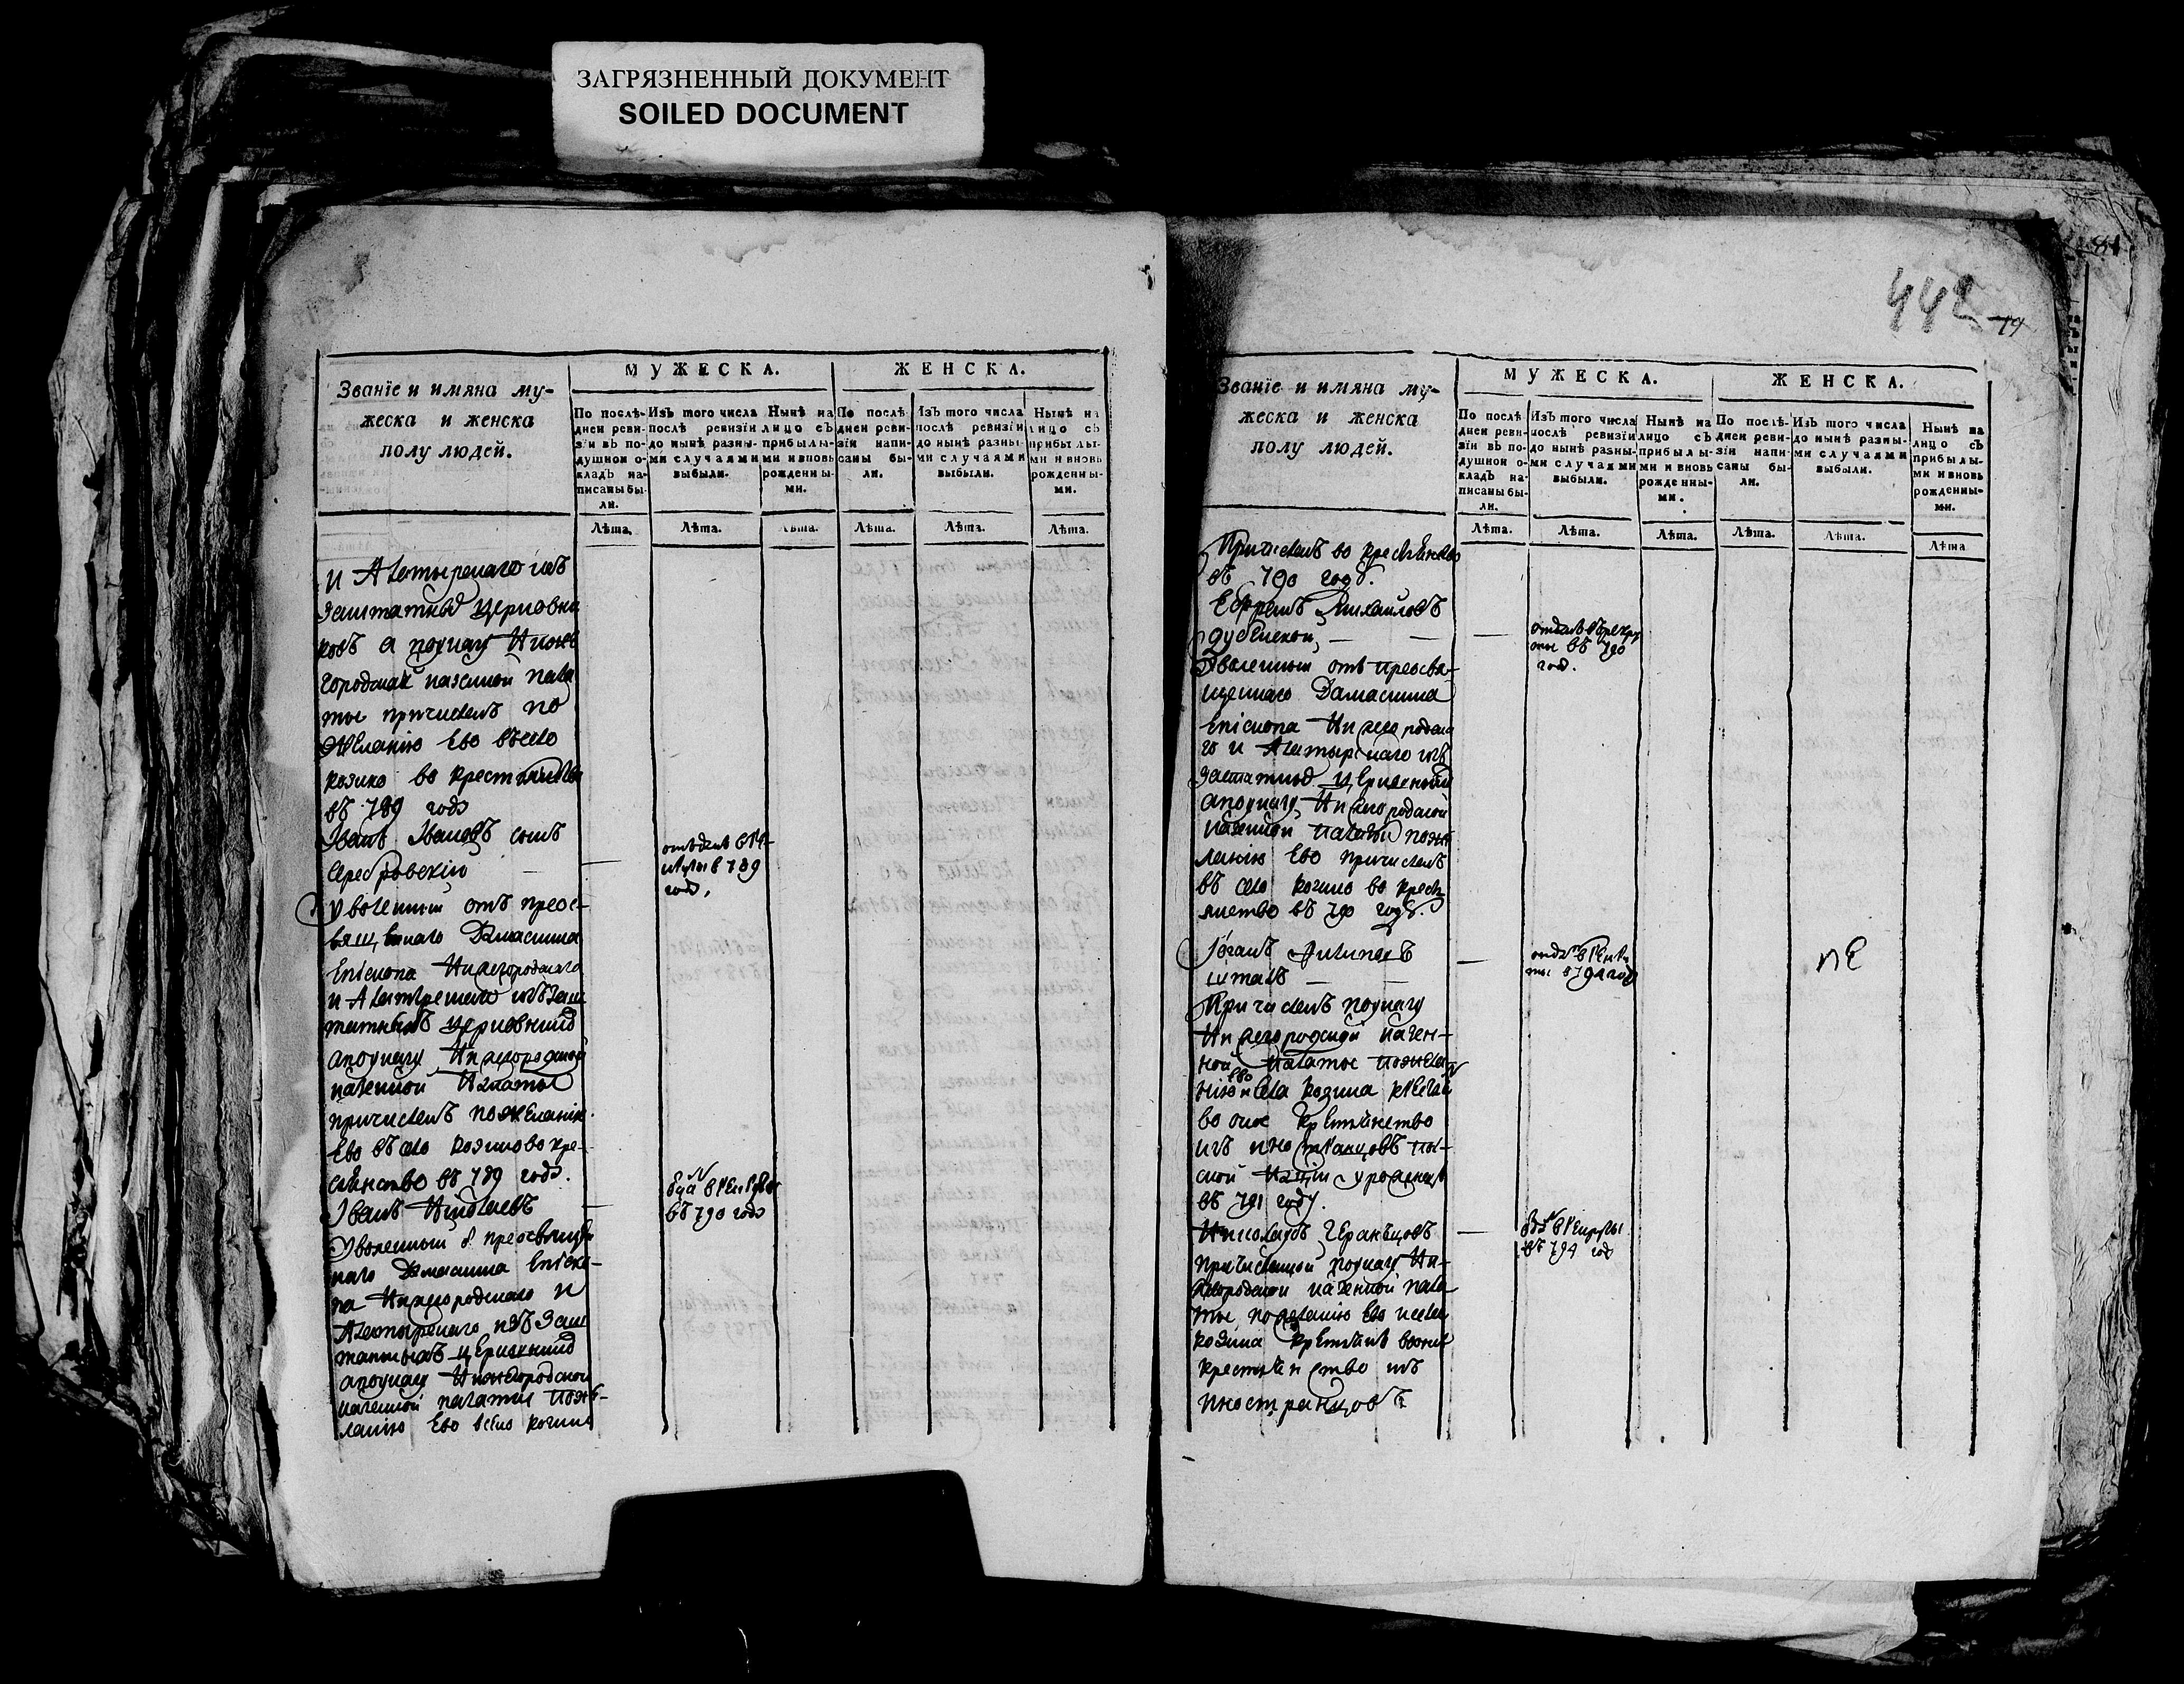 ЗАГРЯЗНЕННЫЙ ДОКУМЕНТ
SOILED DOCUMENT
Званїе и имяна му-
жеска и женска
полу людей.
МУЖЕСКА.
ЖЕНСКА.
По послѣ-
дней реви-
зїи въ по-
душной о-
кладъ на-
писаны бы-
ли.
Изъ того числа
послѣ ревизїи
до нынѣ разны-
ми случаями
выбыли.
Нынѣ на
лицо съ
прибылы-
ми и вновь
рожденны-
ми.
По послѣ
дней реви-
зїи напи-
саны бы-
ли.
Изъ того числа
послѣ ревизїи
до нынѣ разны-
ми случаями
выбыли.
Нынѣ на
лицо съ
прибылы-
ми и вновь
рожденны-
ми.
Лѣта. Лѣта. Лѣта. Лѣта. Лѣта. Лѣта.
и Алатырскаго изъ
заштатныхъ церковни
ковъ а поуказу Нижне
городской казенной пала
ты причисленъ по
желанию ево въ село
козино во крестьянство
въ 789 годе
Иванъ Ивановъ сынъ
Серебровскїй
отъданъ в
1789
годе.
Уволенный отъ преос-
вященнаго Дамаскина
Епископа Нижегородскаго
и Алатырскаго изъ заш
татныхъ церковниковъ
а поуказу Нижегородской
казенной палаты
причисленъ по желанию
Ево въ село козино во кре-
стьянство въ 789 годе.
Иванъ Николаевъ
в рекруты
въ 790 годе
Уволенный преосвященн
наго Дамаскина Епіско-
па Нижегородскаго и
Алатырскаго изъ заш
татныхъ церковниковъ
а поуказу Нижегородской
казенной палаты поже-
ланию Ево в село козино
442
79
Званїе и имяна му-
жеска и женска
полу людей.
МУЖЕСКА.
ЖЕНСКА.
По послѣ
дней реви-
зїи въ по-
душной о-
кладъ на-
писаны бы-
ли.
Изъ того числа
послѣ ревизїи
до нынѣ разны-
ми случаями
выбыли.
Нынѣ на
лицо съ
прибылы-
ми и вновь
рожденны-
ми.
По послѣ-
дней реви-
зїи напи-
саны бы-
ли.
Изъ того числа
до нынѣ разны-
ми случаями
выбыли.
Нынѣ на
лицо съ
прибылы-
ми и вновь
рожденны-
ми.
Лѣта. Лѣта. Лѣта. Лѣта. Лѣта. Лѣта
Причисленъ во крестьянство
въ 790 году.
Ефремъ Михайловъ
Дубенской
отъданъ въ рекру
ты въ 790
годе.
Уволенный отъ преосвя-
щеннаго Дамаскина
Епіскопа Нижегородска
го и Алатырскаго изъ
заштатныхъ церковниковъ
а поуказу Нижегородской
казенной палаты поже
ланию Ево причисленъ
въ село козино во кресть
янство въ 790 году.
в рекру
ты в 794 году
Причисленъ поуказу
Нижегородской казен-
ной палаты пожела
нию ево села козина
во оное крестьянство
изъ иностранцовъ
въ 791 году.
в рекруты
въ 794 годе
Причисленной поуказу Ни-
жегородской казенной пала
ты по желанию Ево
козина крестьянъ
крестьянство изъ
иностранцовъ